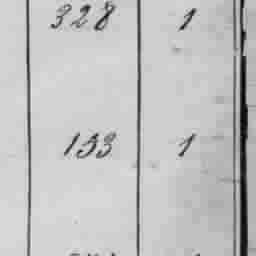 328 1
133 1